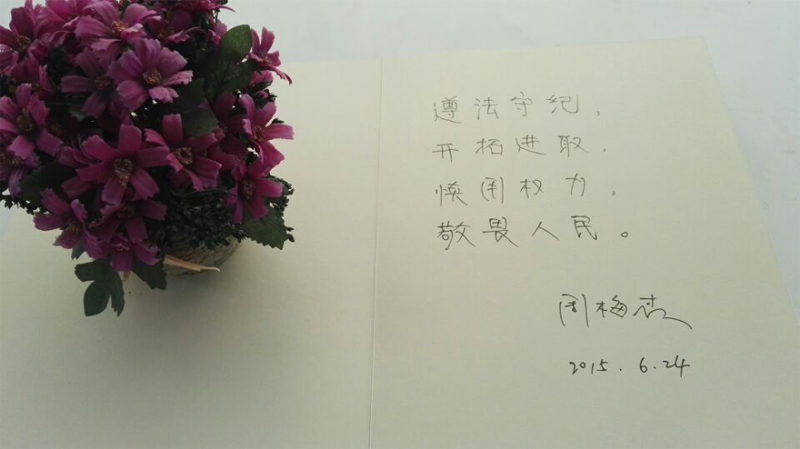 遵法守纪，
开拓进取，
慎用权力，
敬畏人民。
周梅
2015.6.24